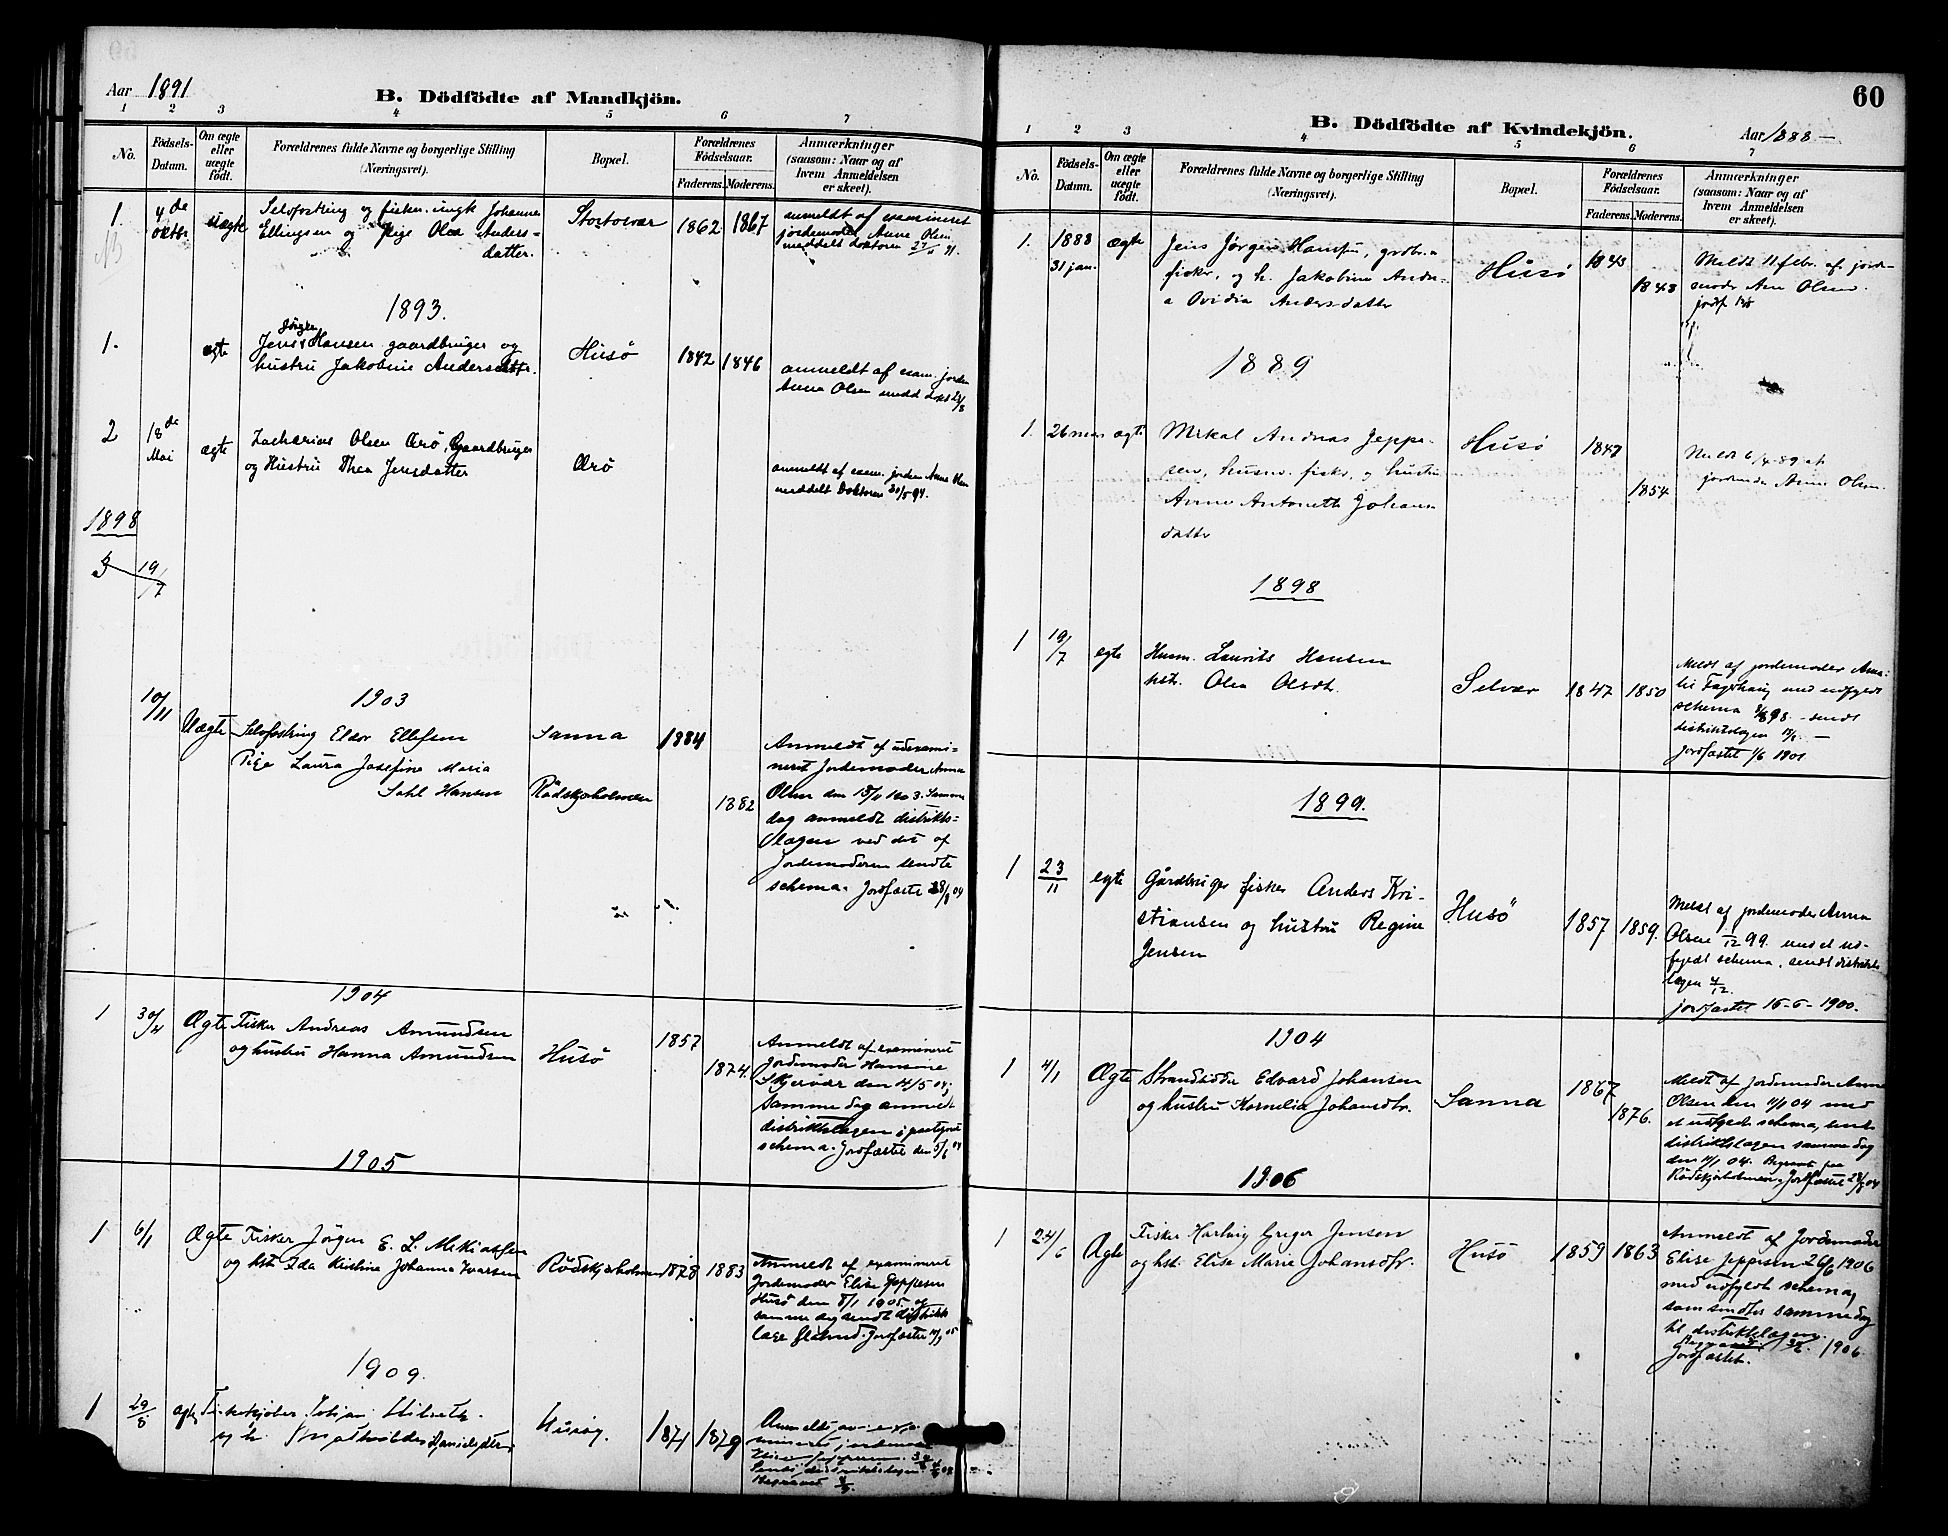 Aar 1891
B. Dödfödte af Mandkjön.
1 2 3 4 5 6 7
No.
Födsels-
Datum.
Om ægte
eller
uægte
født.
Forældrenes fulde Navne og borgerlige Stilling
(Næringsvei).
Bopæl.
Forældrenes
Födselsaar.
Faderens. Moderens.
Anmærkninger
(saasom: Naar og af
hvem Anmeldelsen
er skeet).
1. 4de oktbr uægte
Selvfostring og fisker. ungk Johannes
Ellingsen og pige Olea Anders-
datter.
Stortosvær 1862 1867
anmeldt af examineret
jordemoder Anne Olsen
meddelt doktoren 27/11 91.
1893.
1. ægte
Jens Jörgen Hansen gaardbruger og
hustru Jakobine Andersdtr.
Husö 1842 1846
anmeldt af exam. jordem
Anna Olsen medd
2 18de Mai ægte
Zacharias Olsen Ærö, Gaardbruger
og Hustru Thea Jensdatter
Ærö
anmeldt af exam. jordem Anne Olsen
meddelt Doktoren 30/5 94.
1898
19/7
1903
10/11 Uægte
Selvfostring Eldor Ellefsen
Pige Laura Josefine Maria
Sahl Hansen
Sanna
Rödskjæholmen
1884
1882
Anmeldt af udexami-
neret Jordemoder Anna
Olsen den 15/11 1903. Samme
dag anmeldt distrikts-
lægen ved det af
Jordemoderen sendte
schema. Jordfæstet 28/8 04
1904
1 30/4 Ægte
Fisker Andreas Amundsen
og hustru Hanna Amundsen
Husö 1857
1874.
Anmeldt af examineret
Jordemoder Hansine
Skjervær den 4/5 04;
samme dag anmeldt
distriktslægen i
schema. Jordfæstet den 5/6 04
1905
1 6/1 Ægte
Fisker Jörgen E. L. Mikkalsen
og hst Ida Kristine Johanna Ivarsen
Rödskjæholmen 1878 1883
Anmeldt af examineret
Jordemoder Elise Jeppesen
Husö den 8/1 1905 og
samme dag sendt distrikts
læge Jordfæstet
1909.
1 29/8 ægte
og h. Danielsdtr
Husöy. 1871 1879
Anmeldt av exa-
mineret jordemor
Elise Jeppesen
Sendt distriktslægen
Begravet

60
B. Dödfödte af Kvindekjön.
Aar 1888 –
1 2 3 4 5 6 7
No.
Födsels-
Datum.
Om ægte
eller
uægte
født.
Forældrenes fulde Navne og borgerlige Stilling
(Næringsvei).
Bopæl.
Forældrenes
Födselsaar.
Faderens. Moderens.
Anmærkninger
(saasom: Naar og af
hvem Anmeldelsen
er skeet).
1. 1888 31 jan. ægte
Jens Jørgen Hansen, grdbr. o
fisker, og h. Jakobine Andre-
a Ovidia Andersdatter
Husö 1843
1843
Meldt 11 febr. af jorde-
moder Ane Olsen.
1889
1. 26 mars ægte
Mikal Andreas Jeppe-
sen, husm. fisker, og hustru
Anne Antonette Johans-
datter
Husö 1847
1854
Meldt 6/4 89 af
jordemoder Anne Olsen.
1898
1 19/7 egte
Husm. Laurits Hansen
hstr. Olea Olsdtr.
Selvær 1847 1850
Meldt af jordemoder Ama-
lie Fagerhaug med udfyldt
schema 98. sendt
distriktslægen
Jordfæstet 1/6 1901
1899.
1 23/11 egte
Gårdbruger fisker Anders Kri-
stiansen og hustru Regine
Jensen
Husö 1857 1859.
Meldt af jordemoder Anna
Olsen /12 99 med et ud-
fyldt schema, sendt distrikts
lægen 4/12.
jordfæstet 16-6-1900.
1904
1 4/1 Ægte
Strandsidder Edvard Johansen
og hustru Kornelia Johansdtr.
Sanna 1867
1876.
Meldt af Jordemoder Anne
Olsen den 11/1 04 med
et udfyldt schema, sendt
distriktslægen samme dag
den 11/1 04. Begravet paa
Rödskjæholmen, Jordfæstet 28/8 04
1906
1 24/6 Ægte
Fisker Hartvig Greger Jensen
og hst. Elise Marie Johansdtr.
Husö 1859 1863
Anmeldt af Jordemoder
Elise Jeppesen 26/6 1906
med udfyldt schema,
som sendtes samme dag
til distriktslægen.
Jordfæstet. 1906